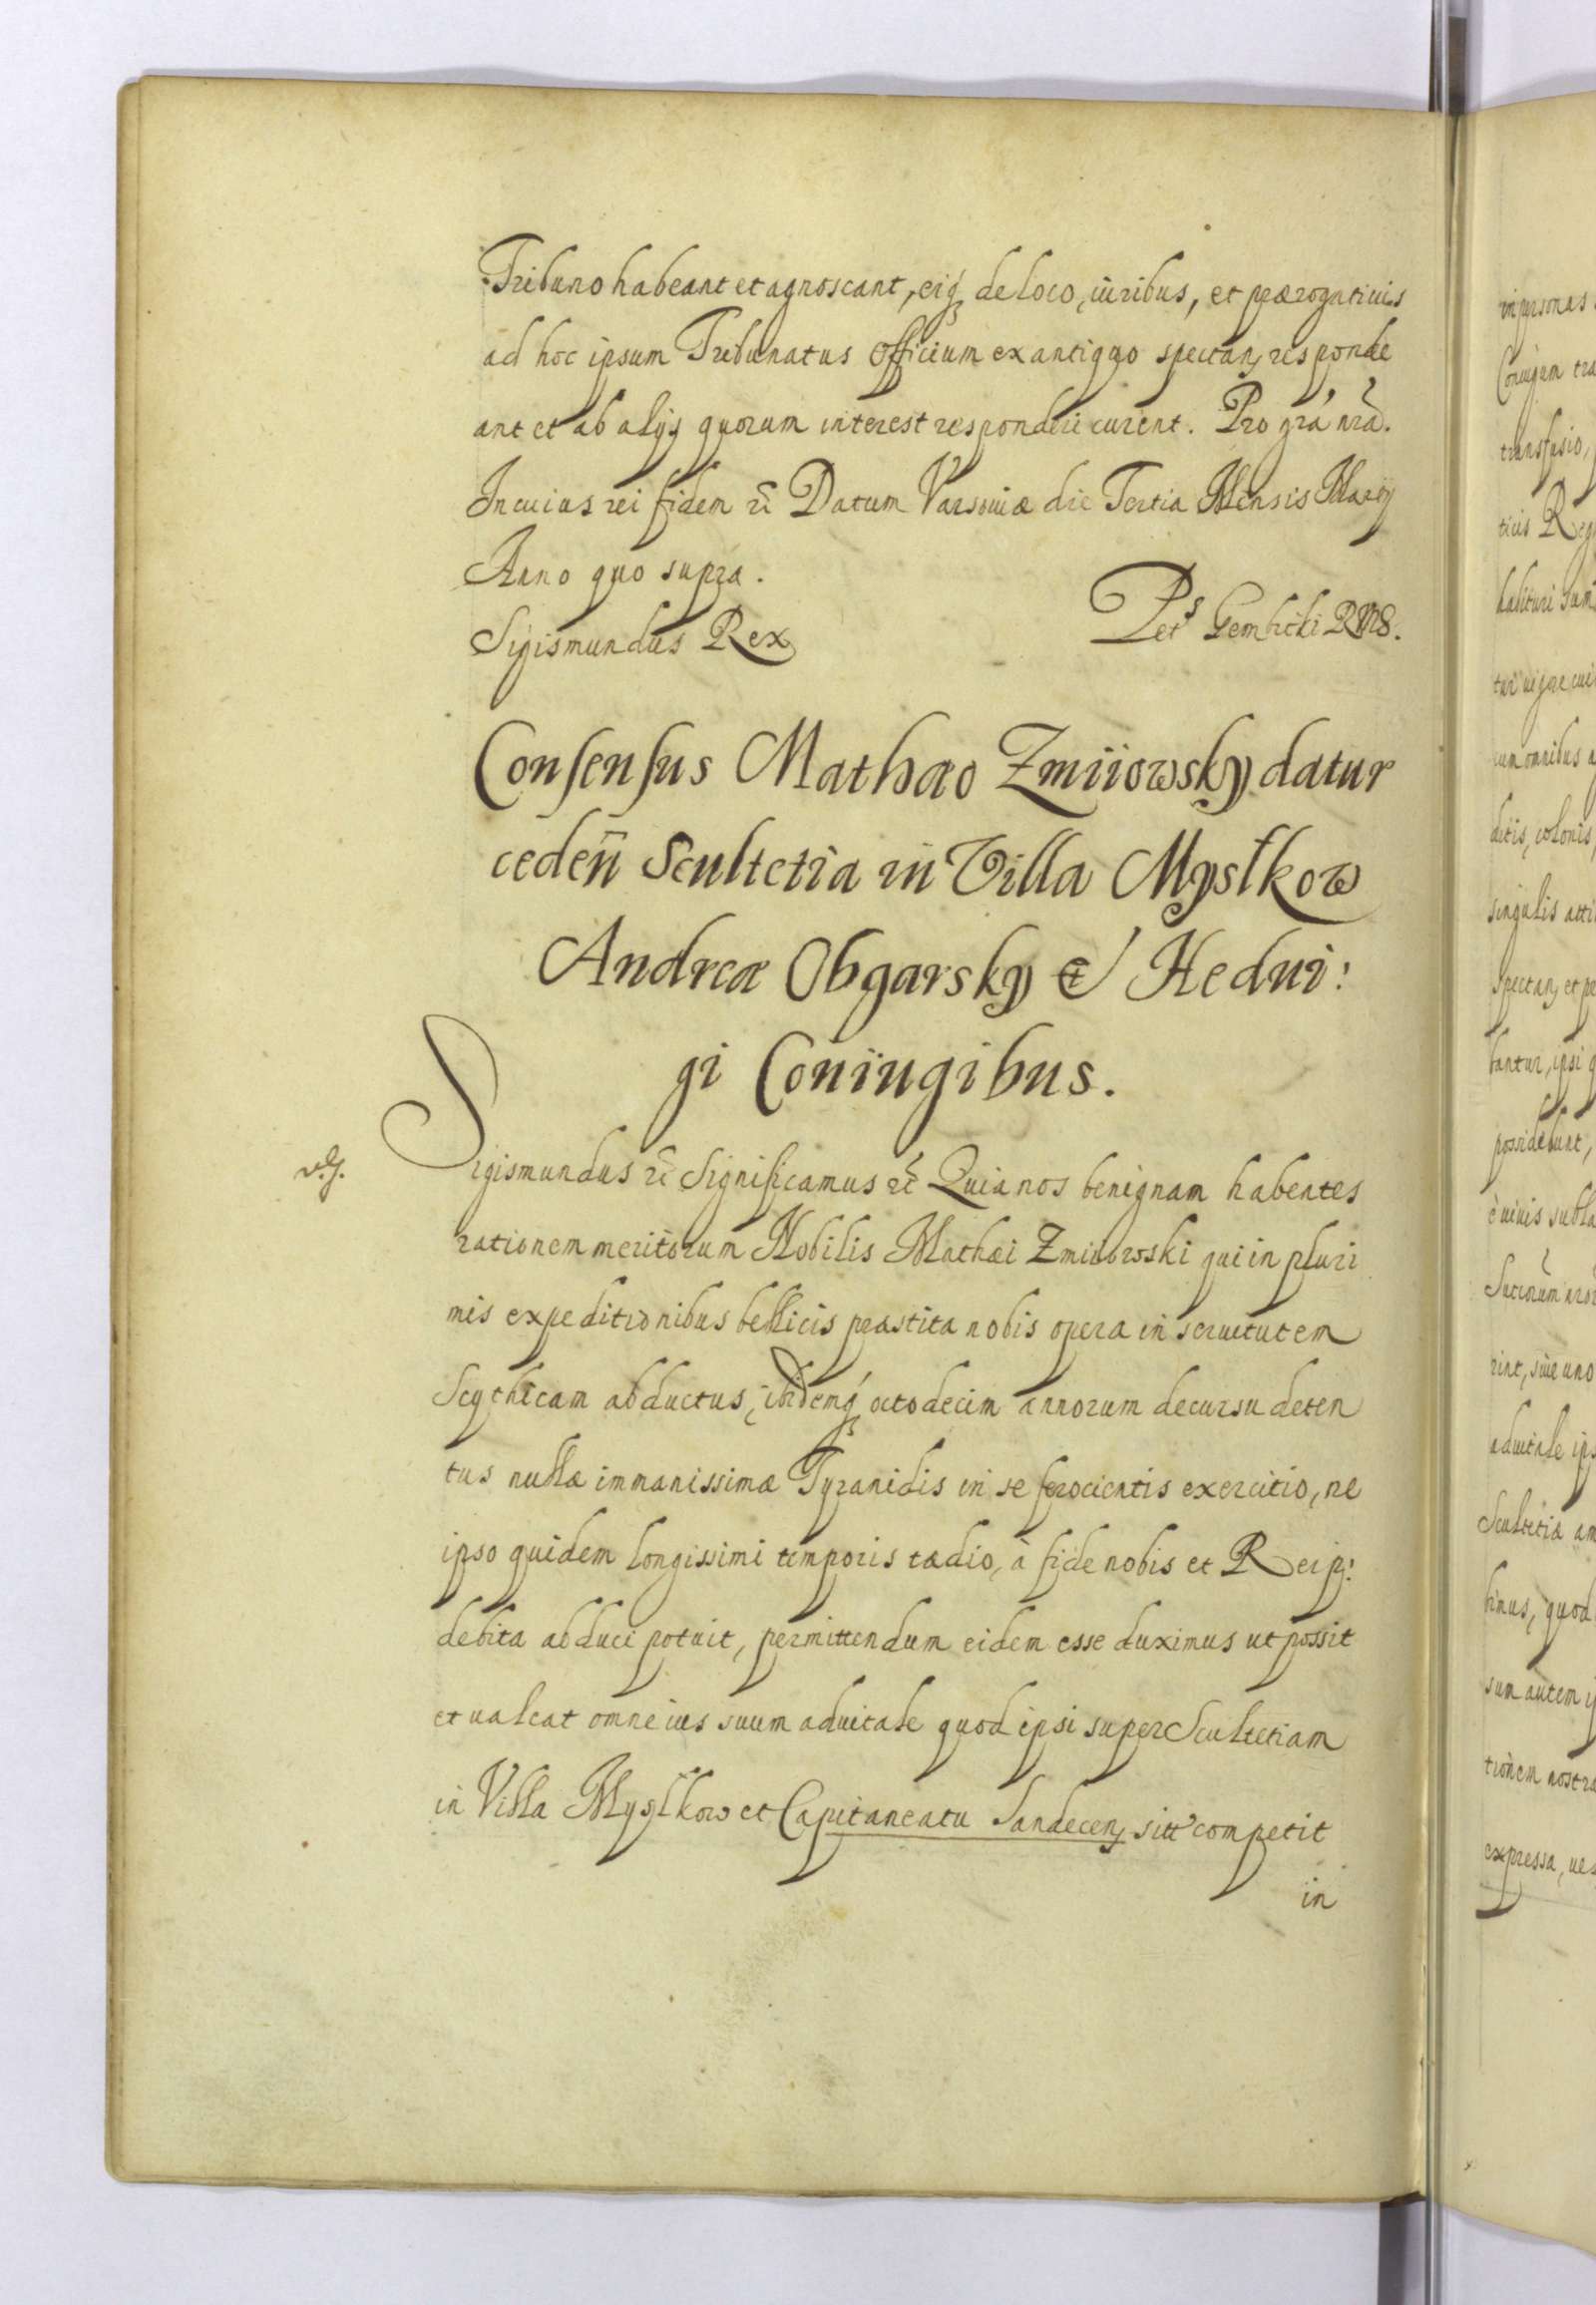 Tribuno habeant et agnoscant, eiq́ꝫ de loco, iuribus, et prærogatiuis
ad hoc ipsum Tribunatus officium ex antiquo spectanꝭ responde
ant et ab alijs quorum interest responderi curent. Pro grá nrá.
In cuius rei fidem etc̃ Datum Varsouiæ die Tertia Mensis Marÿ
Anno quo supra.
Sigismundus Rex
Pets Gembicki RMS.
Consensus Mathæo Zmiiowsky datur
cedeñ Scultetia in Villa Mystkow
Andreæ Obgarsky et Hedui:
gi Coniugibus.
Sigismundus etc̃ Significamus etc̃ Quia nos benignam habentes
rationem meritorum Nobilis Mathæi Zmiiowski qui in pluri
mis expeditionibus bellicis præstita nobis opera in seruitutem
Scythicam abductus, ibidemq́ꝫ octodecim annorum decursu deten
tus nullæ immanissimæ Tyranidis in se ferocientis exercitio, ne
ipso quidem longissimi temporis tædio, à fide nobis et Reip:
debita abduci potuit, permittendum eidem esse duximus ut possit
et ualeat omne ius suum aduitale quod ipsi super Scultetiam
in Villa Mystkow et Capitaneatu Sandecenꝭ sitt̃ competit
in
inpersonas
Coniugem tra
transfusio,
ticis Reg
habituri sum
cum omnibus a
ditis, colonis,
singulis atti
spectanꝭ et pe
bantur, ipsi q
possidebunt,
è uiuis subla
rint, siue uno
aduitale ips
Scultetiæ am
bimus, quod
sum autem ip
tionem nostra
expressa, ues